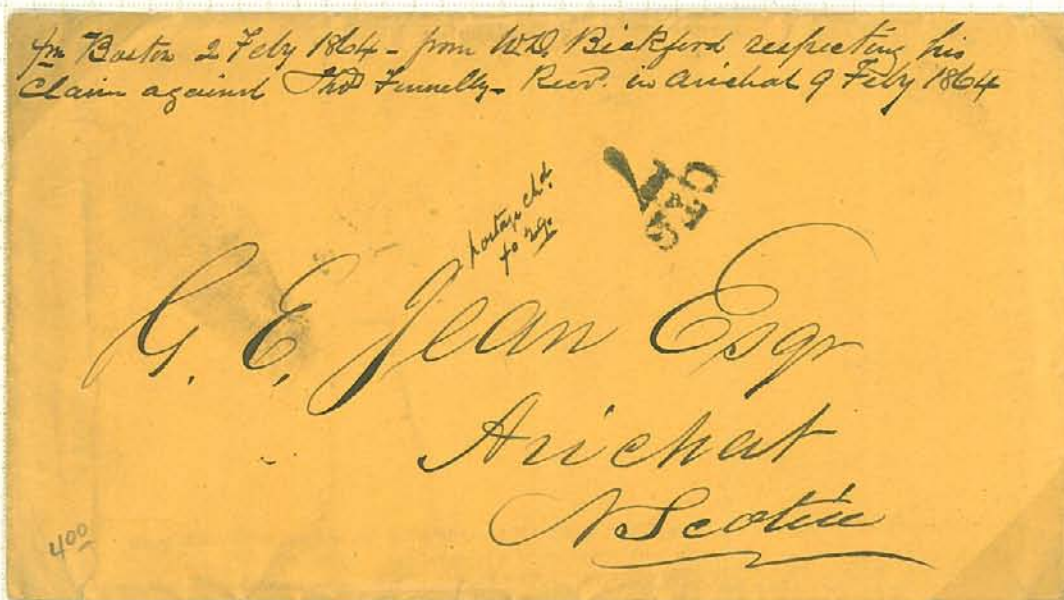 fm Boston 2 Feby 1864 - from W.D. Bickford respecting his
Claim against Thos Funnelly - Recd. in Arichat 9 Feby 1864
postage chd.
to
G. E. Jean Esqr
Arichat
N Scotia
400